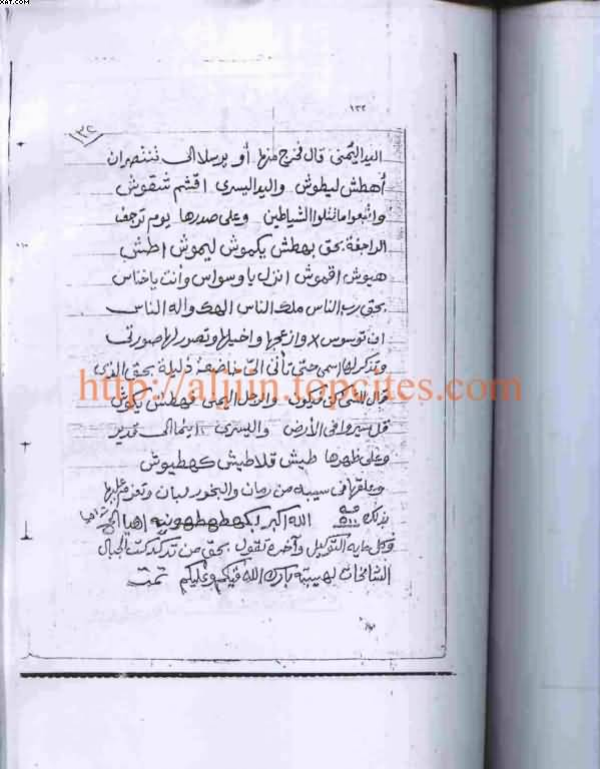 XAT.COM
١٣٢
١٣٢
اليد اليمنى قال فخرج منها أو يرسلا الى تنتصران
أهطش ليطوش واليد اليسرى اقشم شقوش
واتبعوا ما تتلوا الشياطين وعلى صدرها يوم ترجف
الراجفة بحق بهطش يكموش ليموش اطش
هيوش اقموش انزل يا وسواس وأنت يا خناس
بحق رب الناس ملك الناس الهك واله الناس
ان توسوس وازعجها واخيلها وتصور لها صورتى
وتذكر لها اسمى حتى تأتى الىّ خاضعة ذليلة بحق الذى
http://aljiin.topcites.com
قال للشئ كن فيكون والرجل اليمنى بكوش
قل سيروا فى الأرض واليسرى الى قدير
وعلى ظهرها طيش قلاطيش كهطيوش
وعلقها فى سيبه من رمان والبخور لبان وتعزم عليها
بذلك الله اكبر بكهطهطهونيه اهيا
وكل ماية التوكيل وآخره تقول بحق من تدكدكت الجبال
الشامخات لهيبته بارك الله فيكم وعليكم تمت